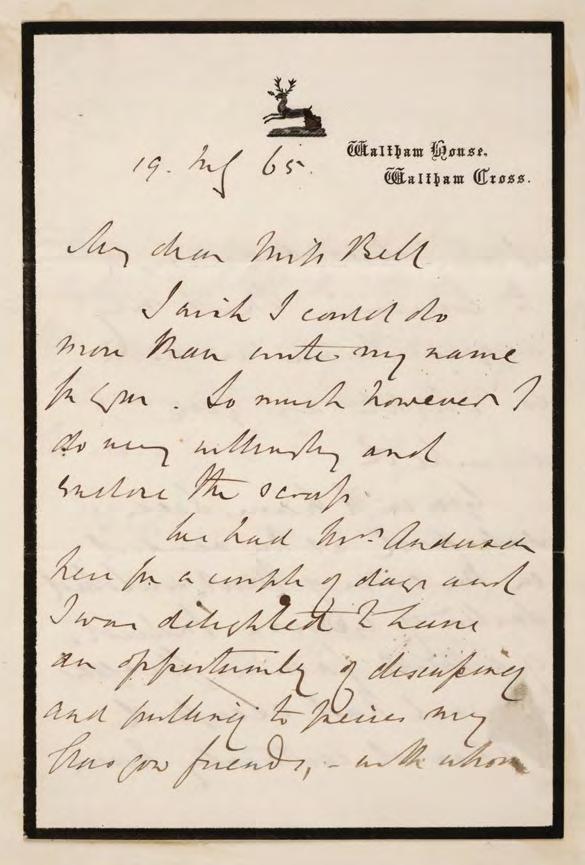 Waltham House,
Waltham Cross.
19. 65.
My dear Miss Bell
I wish I could do
more than write my name
for you. So much however I
do very willingly and
enclose the scrap.
We had Mrs. Anderson
here for a couple of days and
I was delighted to have
an opportunity of discussing
and pulling to peices my
Glasgow friends, - with whom